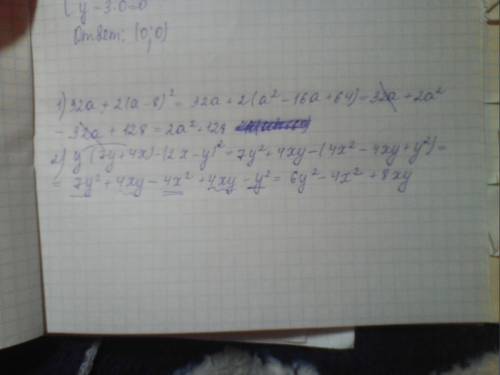 y = 3·0=0
Ответ: (0;0)
1) 32a + 2(a-8)² = 32a + 2(a² - 16a + 64) = 32a + 2a²
- 32a + 128 = 2a² + 128
2) y(7y+4x) - (2x-y)² = 7y² + 4xy - (4x² - 4xy + y²) =
= 7y² + 4xy - 4x² + 4xy - y² = 6y² - 4x² + 8xy